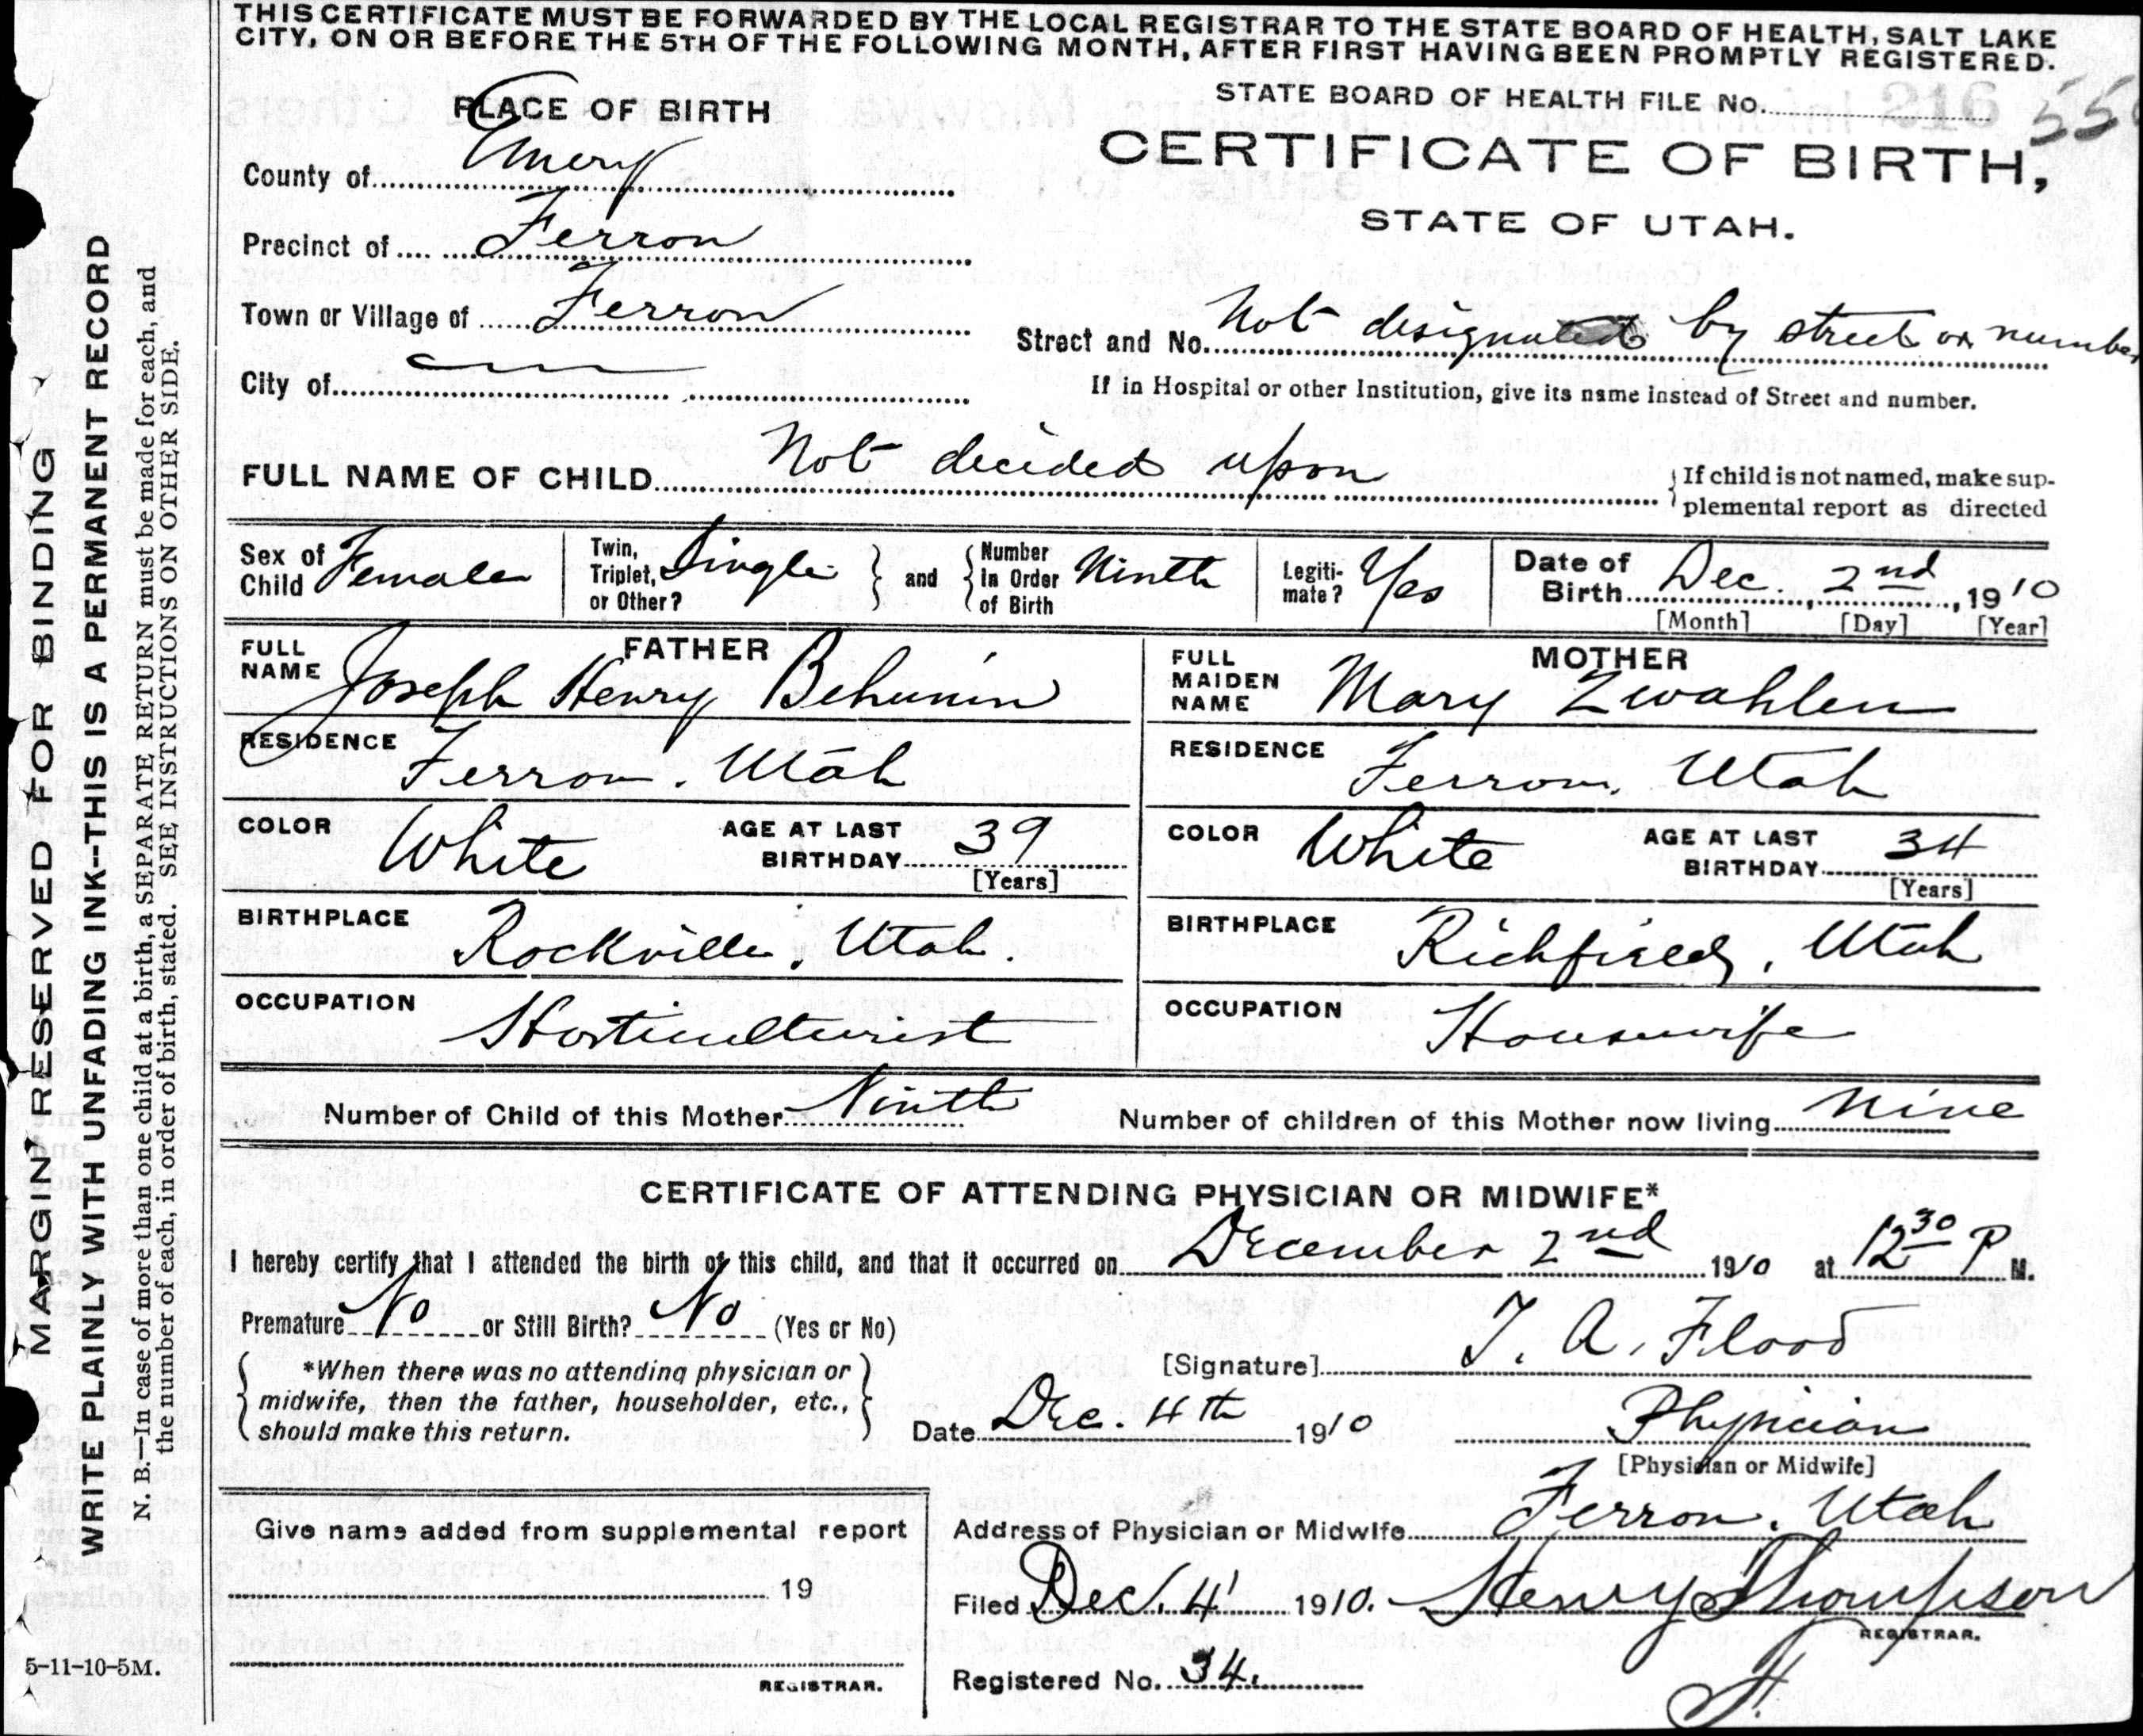 THIS CERTIFICATE MUST BE FORWARDED BY THE LOCAL REGISTRAR TO THE STATE BOARD OF HEALTH, SALT LAKE
CITY, ON OR BEFORE THE 5TH OF THE FOLLOWING MONTH, AFTER FIRST HAVING BEEN PROMPTLY REGISTERED.
PLACE OF BIRTH
County of Emery
Precinct of Ferron
Town or Village of Ferron
City of
STATE BOARD OF HEALTH FILE NO. 216 55
CERTIFICATE OF BIRTH,
STATE OF UTAH.
Street and No. Not designated by street or number
If in Hospital or other Institution, give its name instead of Street and number.
FULL NAME OF CHILD Not decided upon
If child is not named, make sup-
plemental report as directed
Sex of Child Female
Twin, Triplet, or Other? Single
and
Number in Order of Birth Ninth
Legiti-mate? Yes
Date of Birth Dec. 2nd, 1910
[Month] [Day] [Year]
FATHER
FULL NAME Joseph Henry Behunin
RESIDENCE Ferron. Utah
COLOR White AGE AT LAST BIRTHDAY 39
[Years]
BIRTHPLACE Rockville, Utah.
OCCUPATION Horticulturist
MOTHER
FULL MAIDEN NAME Mary Zwahlen
RESIDENCE Ferron, Utah
COLOR White AGE AT LAST BIRTHDAY 34
[Years]
BIRTHPLACE Richfield, Utah
OCCUPATION Housewife
Number of Child of this Mother Ninth Number of children of this Mother now living Nine
CERTIFICATE OF ATTENDING PHYSICIAN OR MIDWIFE*
I hereby certify that I attended the birth of this child, and that it occurred on December 2nd 1910 at 12 30 P M.
Premature No or Still Birth? No (Yes or No)
*When there was no attending physician or
midwife, then the father, householder, etc.,
should make this return.
[Signature] T. A. Flood
Date Dec. 4th 1910 Physician
[Physician or Midwife]
Give name added from supplemental report
19
REGISTRAR.
Address of Physician or Midwife Ferron. Utah
Filed Dec. 4 1910. Henry Thompson
REGISTRAR.
Registered No. 34. H.
MARGIN RESERVED FOR BINDING
WRITE PLAINLY WITH UNFADING INK--THIS IS A PERMANENT RECORD
N. B.--In case of more than one child at a birth, a SEPARATE RETURN must be made for each, and
the number of each, in order of birth, stated. SEE INSTRUCTIONS ON OTHER SIDE.
5-11-10-5M.